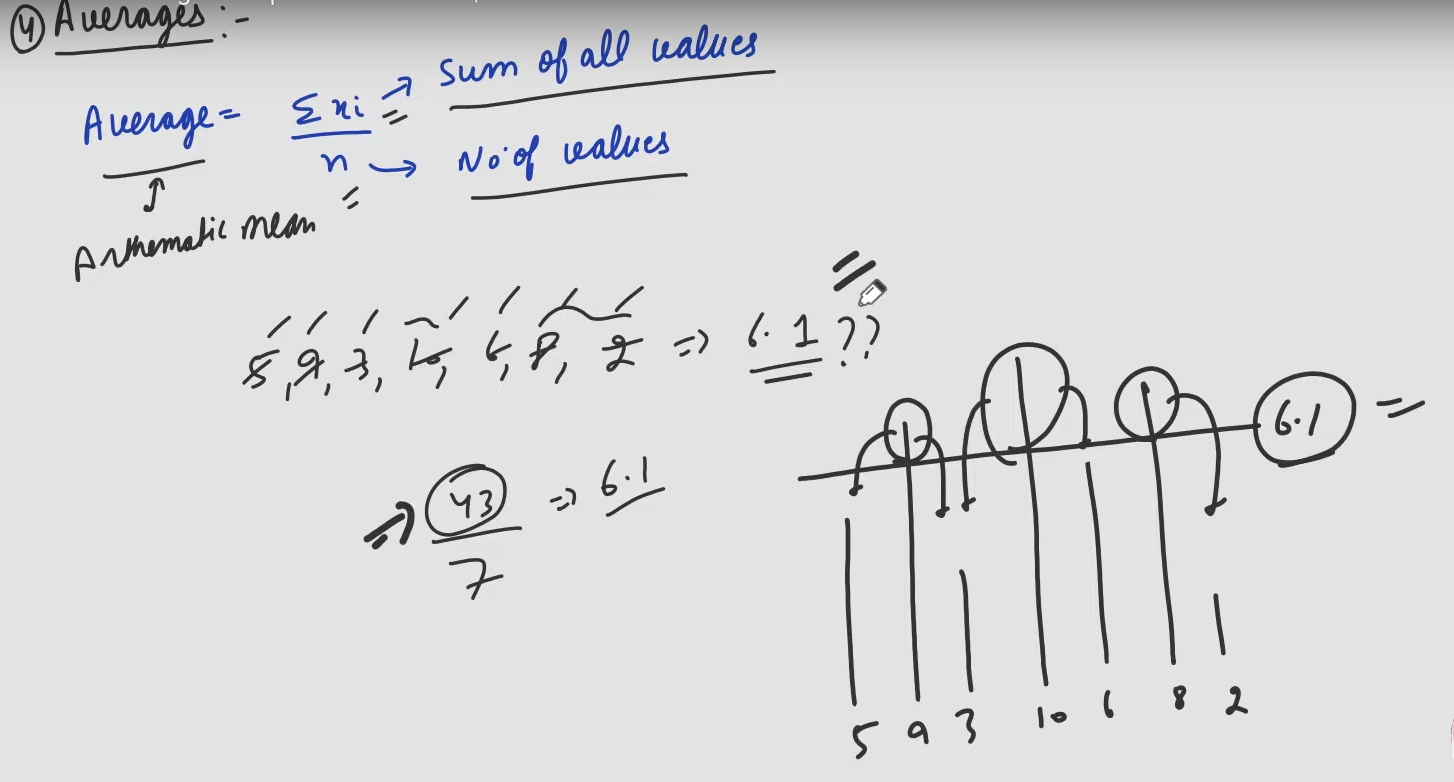 ④ Averages :-
Average = Σxi / n
→ Sum of all values
→ No. of values
Arthematic mean
5, 9, 3, 10, 6, 8, 2 => 6.1 ??
=> 43 / 7 => 6.1
6.1 =
5 9 3 10 6 8 2